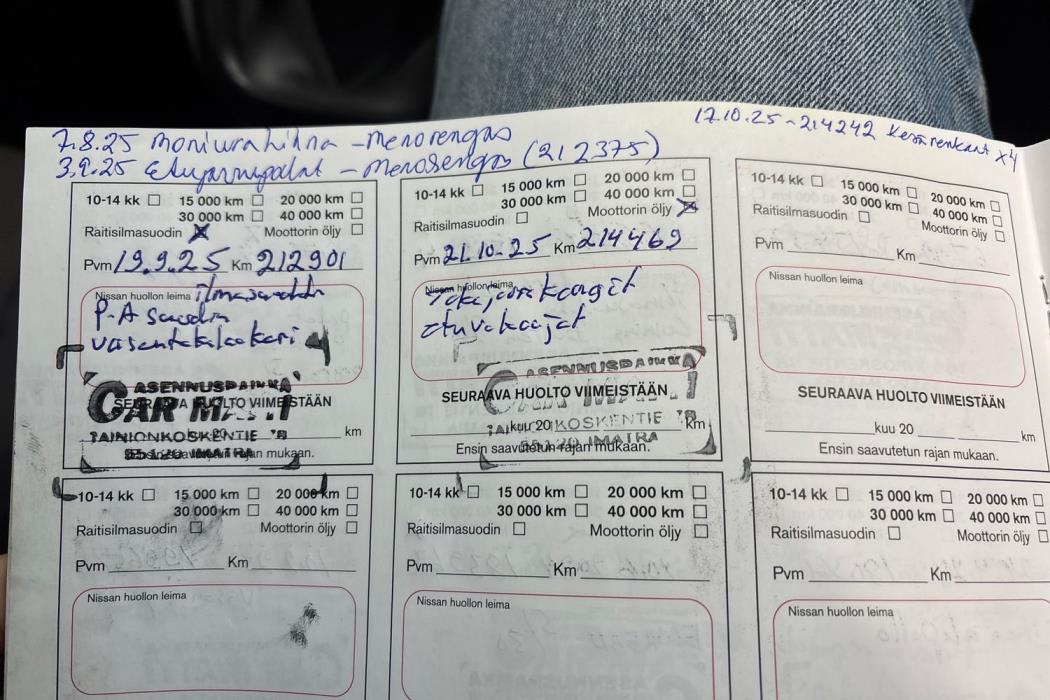 7.8.25 moniurahihna - Menorengas
3.9.25 Etujarrupalat - Menorengas (212375)
17.10.25 - 214242 Kesärenkaat x4
10-14 kk 15 000 km 20 000 km
30 000 km 40 000 km
Raitisilmasuodin Moottorin öljy
Pvm 19.9.25 Km 212901
Nissan huollon leima ilmasuodin
P-A suodin
vasentakalaakeri
ASENNUSPAIKKA
CAR MATTI
SEURAAVA HUOLTO VIIMEISTÄÄN
TAINIONKOSKENTIE 78
km
55120 IMATRA
mukaan.
10-14 kk 15 000 km 20 000 km
30 000 km 40 000 km
Moottorin öljy
Raitisilmasuodin
Pvm 21.10.25 Km 214469
Nissan huollon leima
etuvakaajat
ASENNUSPAIKKA
SEURAAVA HUOLTO VIIMEISTÄÄN
kuu 20 KOSKENTIE 78 km
Ensin saavutetun rajan mukaan.
IMATRA
10-14 kk 15 000 km 20 000 km
30 000 km 40 000 km
Raitisilmasuodin Moottorin öljy
Pvm Km
Nissan huollon leima
SEURAAVA HUOLTO VIIMEISTÄÄN
kuu 20 km
Ensin saavutetun rajan mukaan.
10-14 kk 15 000 km 20 000 km
30 000 km 40 000 km
Raitisilmasuodin Moottorin öljy
Pvm Km
Nissan huollon leima
10-14 kk 15 000 km 20 000 km
30 000 km 40 000 km
Raitisilmasuodin Moottorin öljy
Pvm Km
Nissan huollon leima
10-14 kk 15 000 km 20 000 km
30 000 km 40 000 km
Raitisilmasuodin Moottorin öljy
Pvm Km
Nissan huollon leima